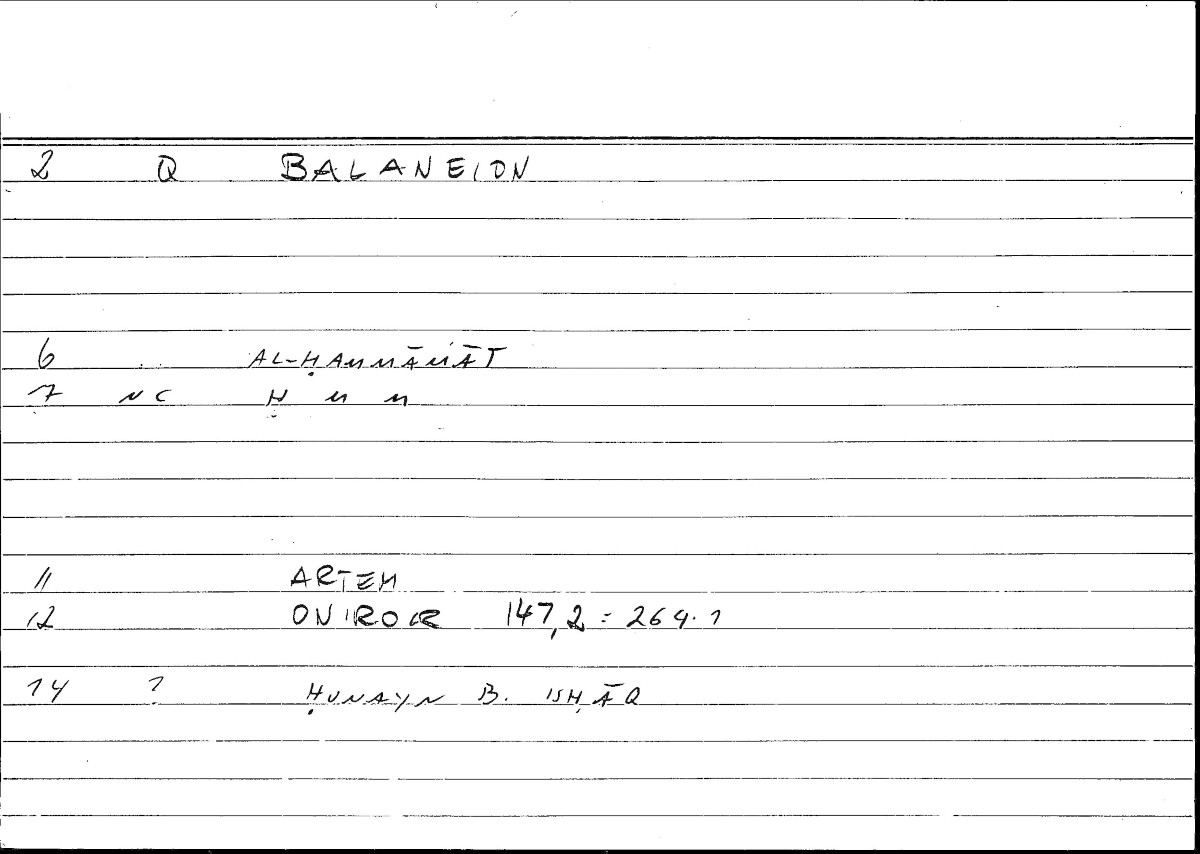 2 Q BALANEION
6 .. AL-ḤAMMĀMĀT
7 NC Ḥ M M
11 ARTEM
12 ONIROCR 147,2 = 264.1
14 ? ḤUNAYN B. ISḤĀQ